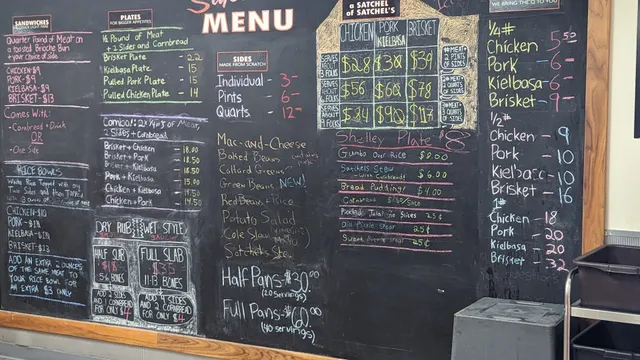 SANDWICHES
Quarter Pound of Meat on
a toasted Brioche Bun
+ your choice of side
CHICKEN-$9
PORK-$9
KIELBASA-$9
BRISKET-$13
Comes With:
-Cornbread + Drink
OR
-One Side
RICE BOWLS
CHICKEN-$10
PORK-$11
KIELBASA-$11
BRISKET-$13
ADD AN EXTRA 2 OUNCES
OF THE SAME MEAT TO
YOUR RICE BOWL FOR
AN EXTRA $3 ONLY
PLATES
FOR BIGGER APPETITES
½ Pound of Meat
+ 2 Sides and Cornbread
Brisket Plate - 22
Kielbasa Plate - 15
Pulled Pork Plate - 15
Pulled Chicken Plate - 14
Combo: 2x ¼#s of Meat,
2 Sides + Cornbread
Brisket + Chicken - 18.00
Brisket + Pork - 18.50
Brisket + Kielbasa - 18.50
Pork + Kielbasa - 15.00
Chicken + Kielbasa - 14.50
Chicken + Pork - 14.50
DRY RUB OR WET STYLE
HALF SLAB
$18
5-6 BONES
FULL SLAB
$35
11-13 BONES
ADD 2 SIDES
AND 1 CORNBREAD
FOR ONLY $4
ADD 4 SIDES
AND 2 CORNBREAD
FOR ONLY
MENU
SIDES
MADE FROM SCRATCH
Individual - 3-
Pints - 6-
Quarts - 12-
Mac-and-Cheese
Baked Beans
Collard Greens
Green Beans NEW!
Red Beans + Rice
Potato Salad
Cole Slaw
Satchel's Stew
Half Pans-$30.00
(20 servings)
Full Pans-$60.00
(40 servings)
a SATCHEL
of SATCHEL'S
CHICKEN PORK KIELBASA BRISKET
$28 $30 $39
$56 $60 $78
$84 $90 $117
Shelley Plate $8
Gumbo over Rice $8.00
Satchel's Stew $6.00
with Cornbread
Bread Pudding $4.00
Cornbread
25¢
Dill Pickle Spear 25¢
Sweet Pickle Spear 25¢
WE BRING THE Q TO YOU
¼#
Chicken 5.50
Pork - 6-
Kielbasa - 6-
Brisket - 9-
½#
Chicken - 9
Pork - 10
Kielbasa - 10
Brisket - 16
1#
Chicken - 18
Pork - 20
Kielbasa - 20
Brisket - 32